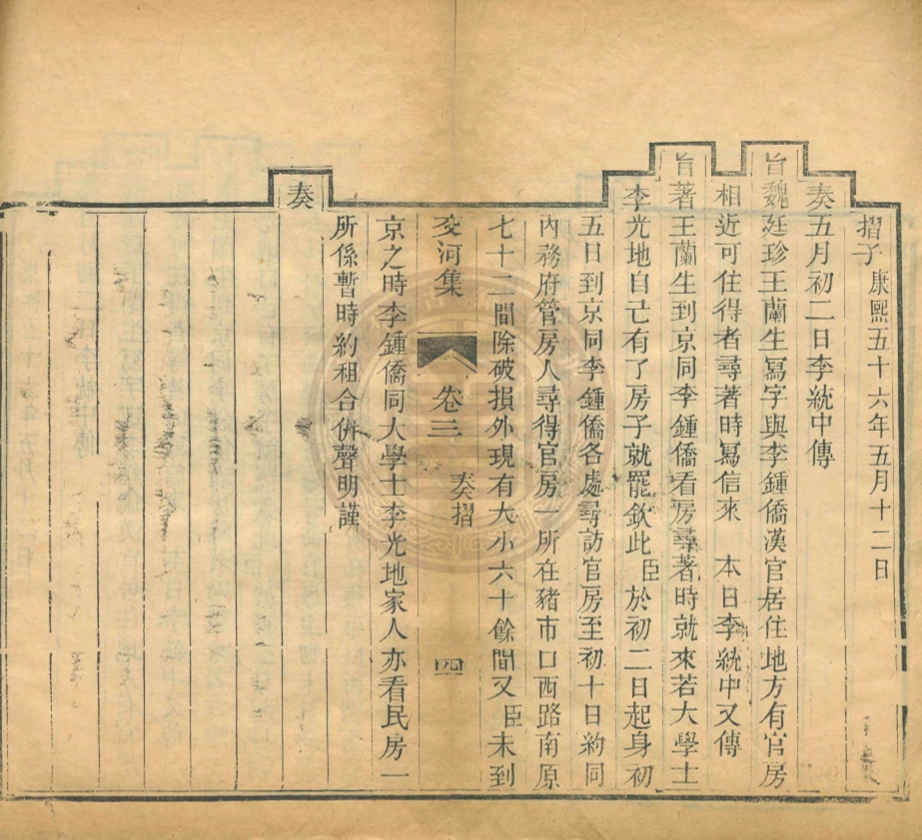 摺子康熙五十六年五月十二日
奏五月初二日李統中傳
旨魏廷珍王蘭生寫字與李鍾僑漢官居住地方有官房
相近可住得者尋著時寫信來 本日李統中又傳
旨著王蘭生到京同李鍾僑看房尋著時就來若大學士
李光地自己有了房子就罷欽此臣於初二日起身初
五日到京同李鍾僑各處尋訪官房至初十日約同
內務府管房人尋得官房一所在豬市口西路南原
七十二間除破損外現有大小六十餘間又臣未到
交河集 卷三 奏摺 四
京之時李鍾僑同大學士李光地家人亦看民房一
所係暫時約租合併聲明謹
奏